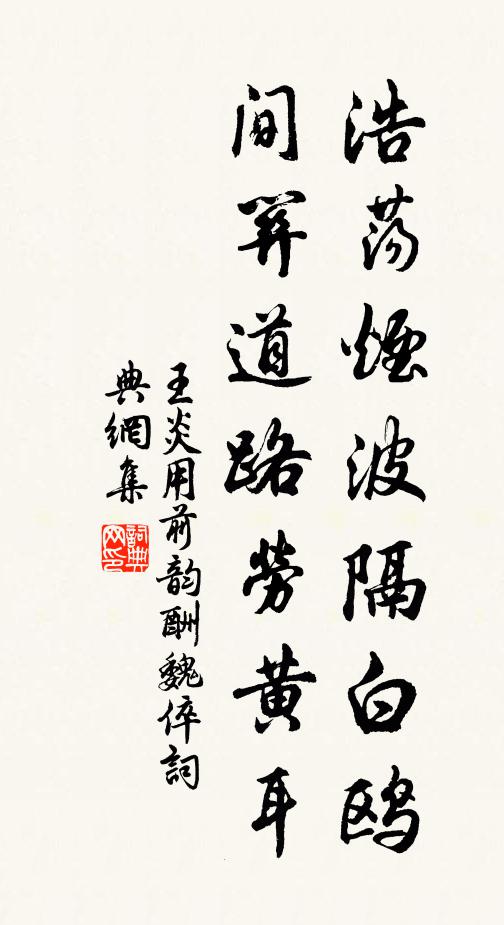 浩荡煙波隔白鸥
间關道路勞黄耳
王炎用前韵酬魏倅詞
典網集
詞典网印